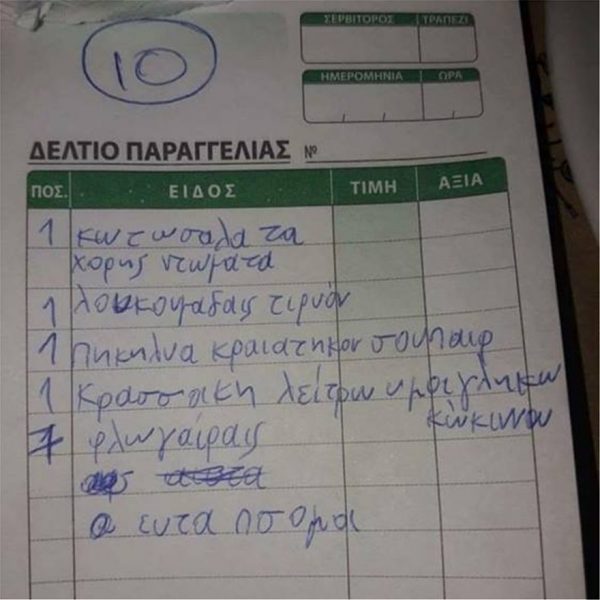 10
ΣΕΡΒΙΤΟΡΟΣ ΤΡΑΠΕΖΙ
ΗΜΕΡΟΜΗΝΙΑ ΩΡΑ
ΔΕΛΤΙΟ ΠΑΡΑΓΓΕΛΙΑΣ Νº
ΠΟΣ. ΕΙΔΟΣ ΤΙΜΗ ΑΞΙΑ
1 κωτωσαλατα
χορης ντωματα
1 λουκουμαδας τιρυόν
1 πηκηλυα κραιατηκον σουπαιρ
1 Κρασσικη λείτρων ημοιγληκων
κώκινου
7 φλωγαίρας
α ευτα ποσομαι